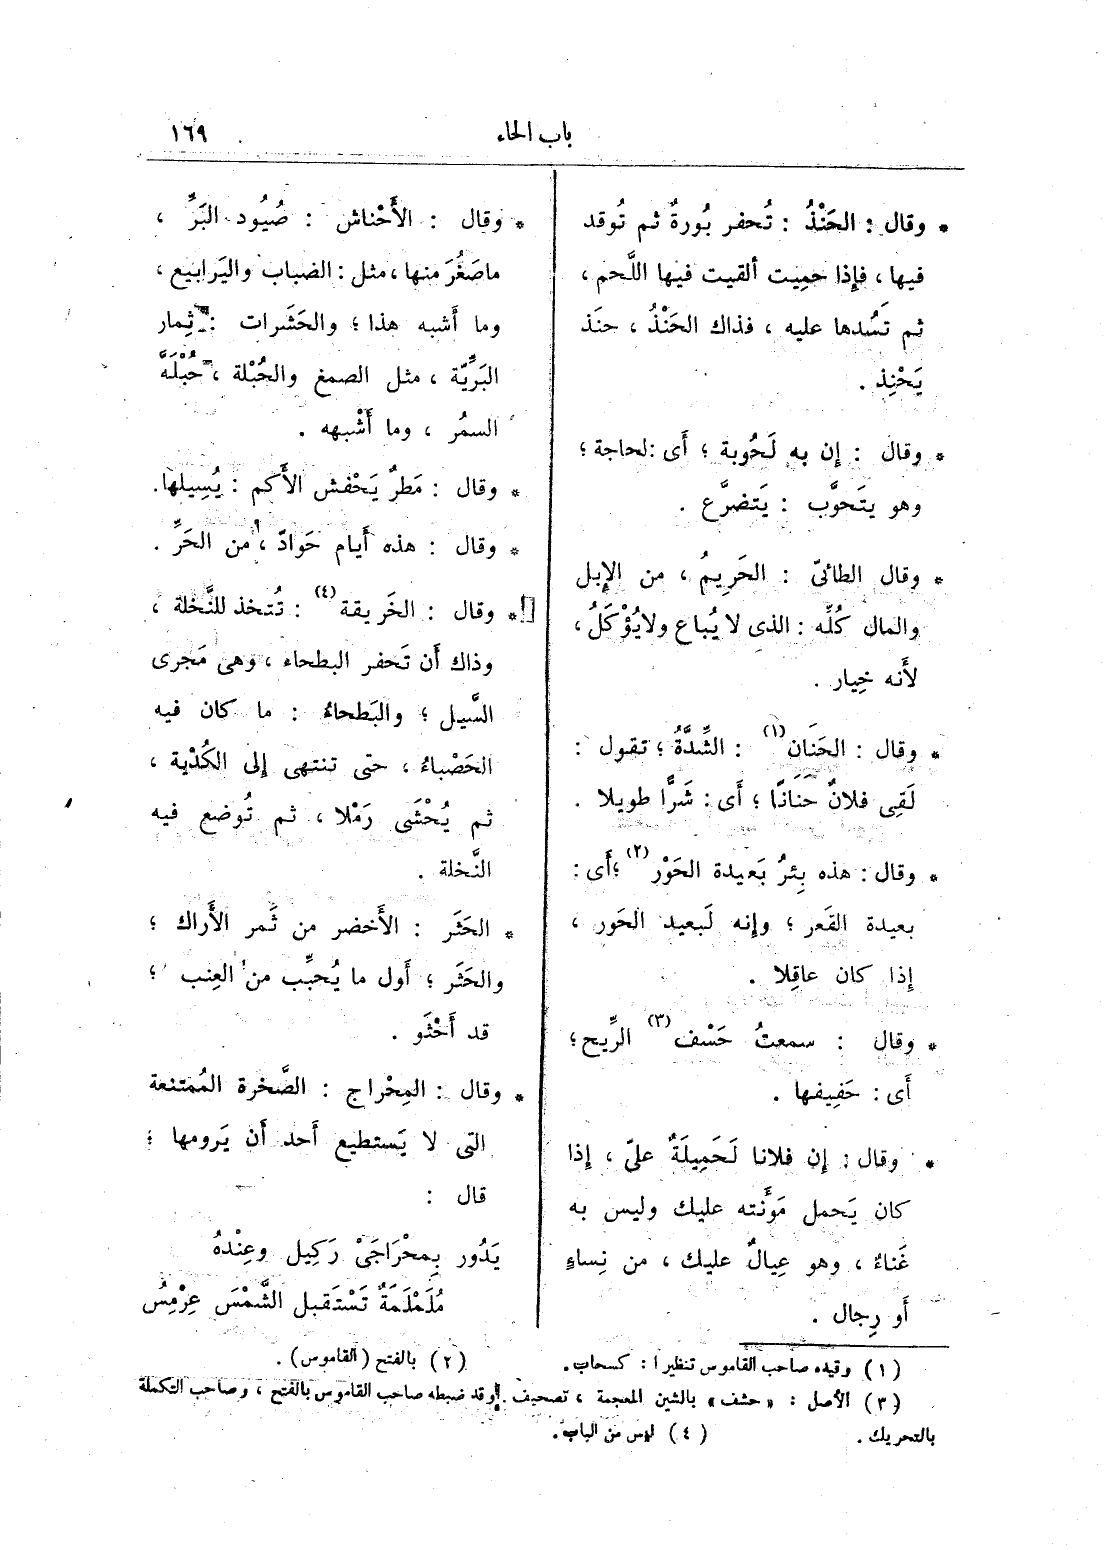 باب الحاء
١٦٩
* وقال : الحَنْذُ : تُحفر بُورةٌ ثم تُوقد
فيها ، فإِذا حمِيت ألقيت فيها اللَّحم ،
ثم تَسُدها عليه ، فذاك الحَنْذُ ، حنَذ
يَحْنِذ .
* وقال : إن به لَحُوبة ؛ أَى : لحاجة ؛
وهو يتَحوَّب : يَتضرَّع .
* وقال الطائىّ : الحَرِيمُ ، من الإِبل
والمال كُلِّه : الذى لا يُباع ولايُؤْكَلُ ،
لأَنه خِيار .
* وقال : الحَنَان (١) : الشِّدَّةُ ؛ تقول :
لَقِى فلانٌ حَنَانًا ؛ أَى : شَرًّا طويلا .
* وقال : هذه بِئرُ بَعيدة الحَوْر (٢) ؛ أَى :
بعيدة القَعر ؛ وإِنه لَبعيد الحَور ،
إِذا كان عاقِلا .
* وقال : سمعتُ حَسْف (٣) الرِّيح ؛
أَى : حَفِيفها .
* وقال : إن فلانا لَحَمِيلَةٌ علىّ ، إِذا
كان يَحمل مَؤُنته عليك وليس به
غَناءٌ ، وهو عِيالٌ عليك ، من نِساءٍ
أَو رِجال .
* وقال : الأَحْناش : صُيُود البَرِّ ،
ماصَغُرَ منها ، مثل : الضباب واليَرابيع ،
وما أَشبه هذا ؛ والحَشَرات : ثِمار
البَرِّيّة ، مثل الصمغ والحُبْلة ، حُبْلَة
السمُر ، وما أَشْبهه .
* وقال : مَطرٌ يَحْفش الأَكم : يُسِيلها .
* وقال : هذه أَيام حَوادّ ، من الحَرِّ .
* وقال : الخَريقة (٤) : تُتخذ للنَّخلة ،
وذاك أَن تَحفر البطحاء ، وهى مَجرى
السَّيل ؛ والبَطحاءُ : ما كان فيه
الحَصْباءُ ، حتى تنتهى إِلى الكُدْية ،
ثم يُحْشَى رَمْلا ، ثم تُوضع فيه
النَّخلة .
* الحَثَر : الأَخضر من ثَمر الأَراك ؛
والحَثَر ؛ أَول ما يُحبِّب من العِنب ؛
قد أَحْثَو .
* وقال : المِحْراج : الصَّخرة المُمتنعة
التى لا يَستطيع أَحد أَن يَرومها ؛
قال :
يَدُور بِمحْرَاجَىْ رَكِيل وعِنْدهُ
مُلَمْلَمَةٌ تَسْتَقبل الشَّمْسَ عِرْمِسُ
(١) وقيده صاحب القاموس تنظيرا : كسحاب.
(٢) بالفتح (القاموس) .
(٣) الأصل : « حشف » بالشين المعجمة ، تصحيف . وقد ضبطه صاحب القاموس بالفتح ، وصاحب التكملة
بالتحريك .
(٤) ليس من الباب.